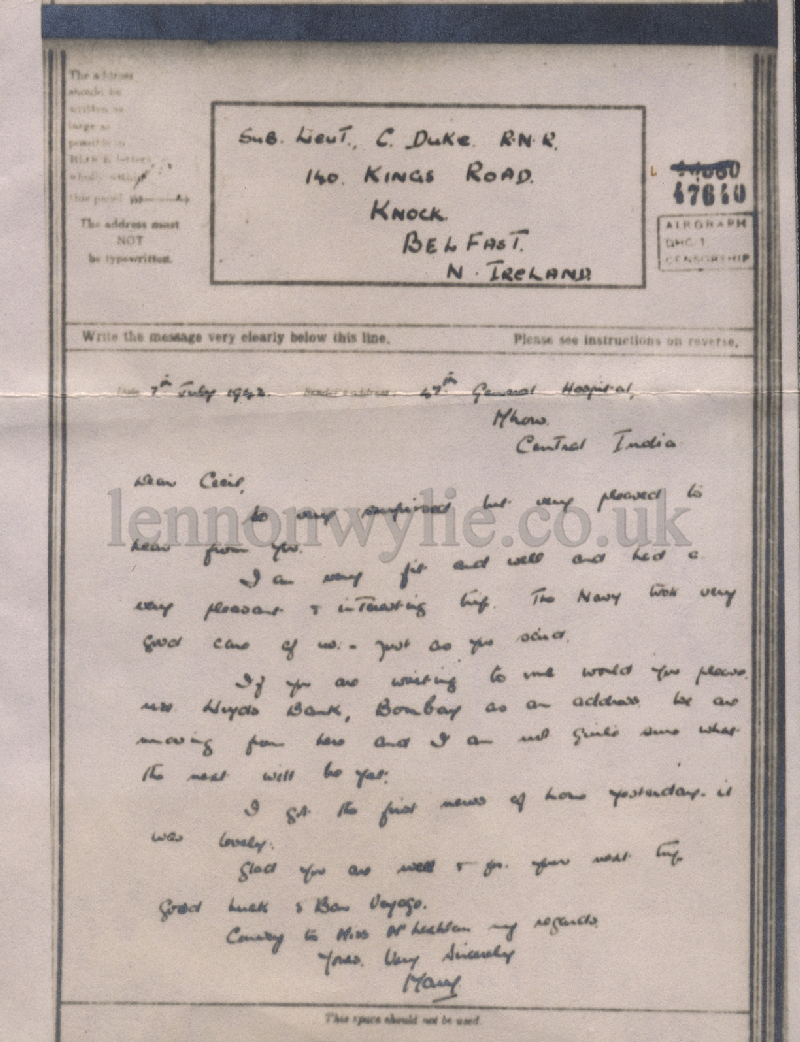 The address
should be
written as
large as
possible in
BLOCK letters
wholly within
this panel
The address must
NOT
be typewritten.
SUB. LIEUT., C. DUKE. R.N.R.
140. KINGS ROAD.
KNOCK
BELFAST.
N. IRELAND
47640
AIRGRAPH
CENSORSHIP
Write the message very clearly below this line.
Please see instructions on reverse.
Date 7th July 1942. Sender's address 47th General Hospital,
Mhow.
Central India
Dear Cecil,
So very surprised but very pleased to
hear from you.
I am very fit and well and had a
very pleasant & interesting trip. The Navy took very
good care of us. - just as you said.
If you are writing to me would you please
use Lloyds Bank, Bombay as an address. We are
moving from here and I am not quite sure what
the next will be yet.
I got the first news of home yesterday. it
was lovely.
Glad you are well & for your next trip
Good Luck & Bon Voyage.
Convey to Miss my regards
Yours. Very Sincerely
Mary
This space should not be used.
lennonwylie.co.uk